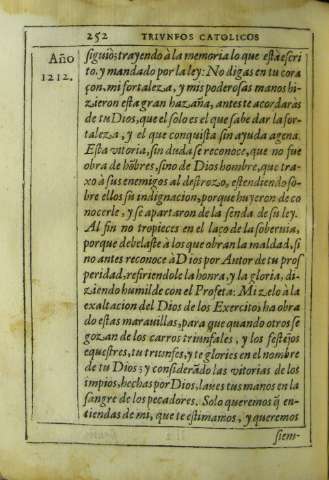 252 TRIVNFOS CATOLICOS
Año
1212.
siguiò; trayendo à la memoria lo que està escri
to, y mandado por la ley: No digas en tu cora
çon, mi fortaleza, y mis poderosas manos hi-
zieron esta gran hazaña, antes te acordaràs
de tu Dios, que el solo es el que sabe dar la for-
taleza, y el que conquista sin ayuda agena.
Esta vitoria, sin duda se reconoce, que no fue
obra de hōbres, sino de Dios hombre, que tra-
xo à sus enemigos al destrozo, estendiendo so-
bre ellos su indignacion, porque huyeron de co
nocerle, y se apartaron de la senda de su ley.
Al fin no tropieces en el laço de la soberuia,
porque debelaste à los que obran la maldad, si
no antes reconoce à Dios por Autor de tu pros
peridad, refiriendole la honra, y la gloria, di-
ziendo humilde con el Profeta: Mi zelo à la
exaltacion del Dios de los Exercitos, ha obra
do estas marauillas, para que quando otros se
gozan de los carros triunfales, y los festejos
equestres, tu triunfes, y te glories en el nombre
de tu Dios; y considerādo las vitorias de los
impios, hechas por Dios, laues tus manos en la
sangre de los pecadores. Solo queremos q̄ en-
tiendas de mi, que te estimamos, y queremos
siem-